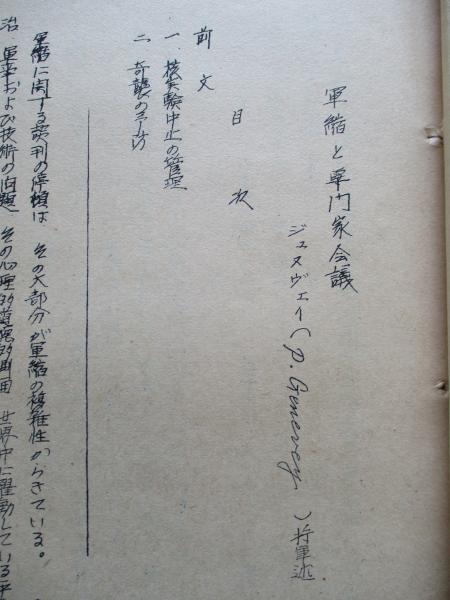 軍縮と専門家会議
ジュヌヴェイ(P. Genevey)将軍述
目次
前文
一、核実験中止の管理
二、奇襲の予防
軍縮に関する談判の停頓は、その大部分が軍縮の複雑性からきている。
治、軍事および技術の問題、その心理的道徳的
世界中に躍動している